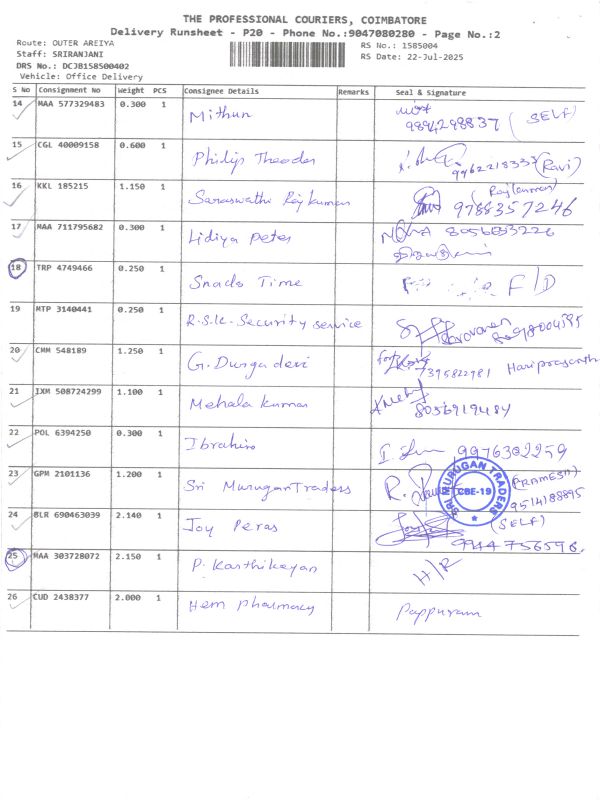 THE PROFESSIONAL COURIERS, COIMBATORE
Delivery Runsheet - P20 - Phone No.:9047080280 - Page No.:2
Route: OUTER AREIYA
RS No.: 1585004
Staff: SRIRANJANI
RS Date: 22-Jul-2025
DRS No.: DCJB158500402
Vehicle: Office Delivery
S No Consignment No Weight PCS Consignee Details Remarks Seal & Signature
14 MAA 577329483 0.300 1 Mithun (SELF)
15 CGL 40009158 0.600 1 Philip Theodor 9962218333 (Ravi)
16 KKL 185215 1.150 1 Saraswathi Rajkumar (Rajkumar) 9788357246
17 MAA 711795682 0.300 1 Lidiya Peter
18 TRP 4749466 0.250 1 Snado Time F/D
19 MTP 3140441 0.250 1 R.S.K. Security service
20 CMM 548189 1.250 1 G. Durga devi 7395822981 Hariprasanth
21 IXM 508724299 1.100 1 Mehala kumar 8056919484
22 POL 6394250 0.300 1 Ibrahim 9976302259
23 GPM 2101136 1.200 1 Sri Murugan Traders R. (PRAMESH) 9514188895
SRI MURUGAN TRADERS
CBE-19
24 BLR 690463039 2.140 1 Joy Peras (SELF) 9944756596.
25 MAA 303728072 2.150 1 P. Karthikeyan H/R
26 CUD 2438377 2.000 1 Hem pharmacy Pappuram